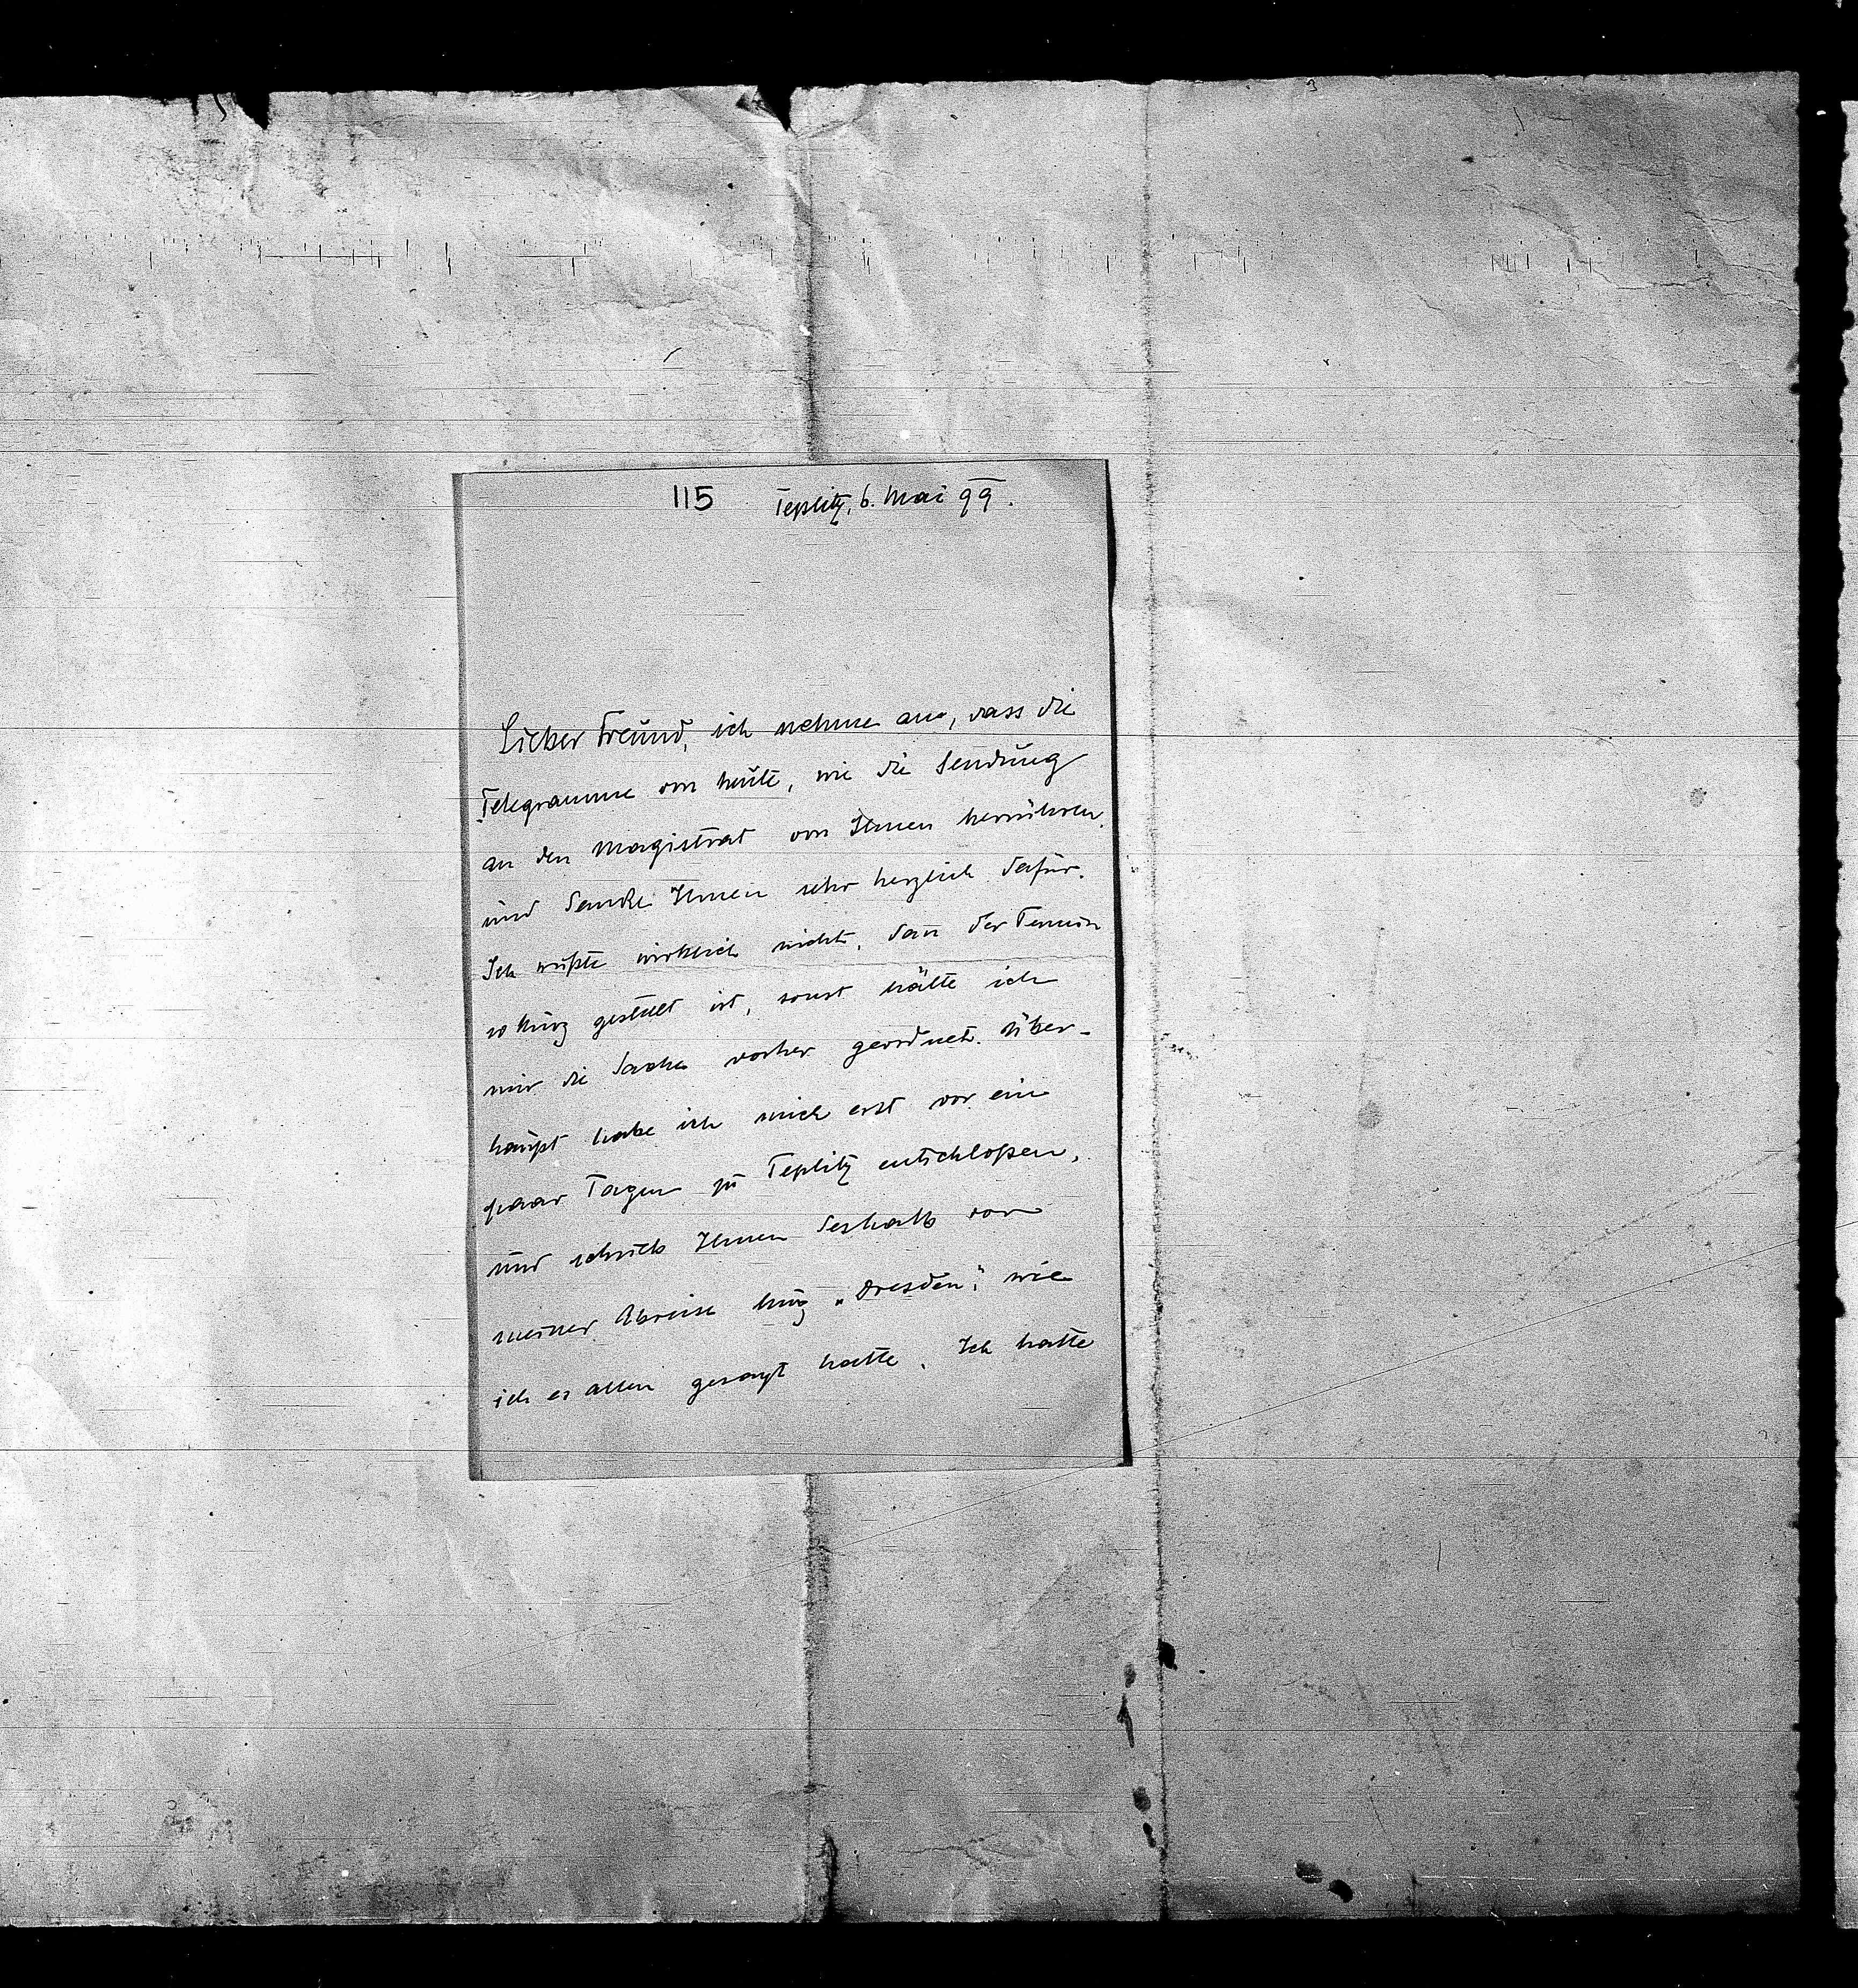 115 Teplitz, 6. Mai 99.
Lieber Freund, ich nehme an, dass die
Telegramme von heute, wie die Sendung
an den Magistrat von Ihnen herrühren,
und danke Ihnen sehr herzlich dafür.
Ich wußte wirklich nicht, daß der Termin
so kurz gestellt ist, sonst hätte ich
mir die Sache vorher geordnet. Über-
haupt habe ich mich erst vor ein
paar Tagen zu Teplitz entschloßen,
und schrieb Ihnen deshalb vor
meiner Abreise kurz „Dresden", wie
ich es allen gesagt hatte. Ich hatte